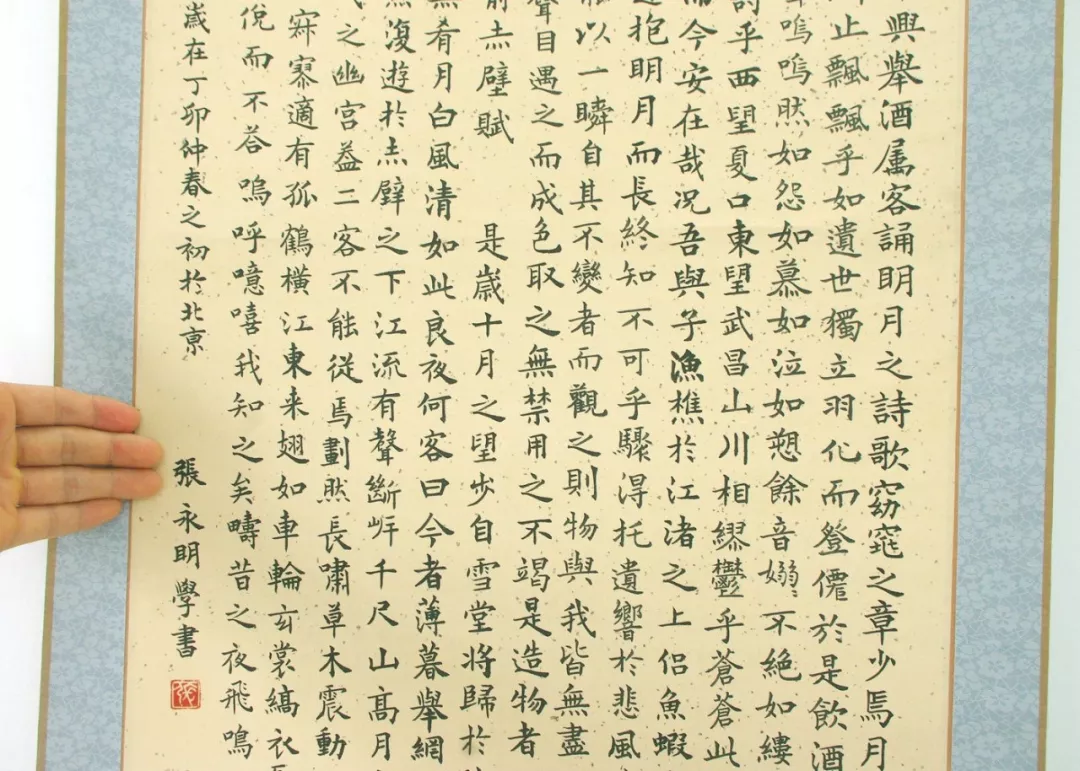 興舉酒属客誦明月之詩歌窈窕之章少焉月
止飄飄乎如遺世獨立羽化而登僊於是飲酒
嗚嗚然如怨如慕如泣如愬餘音嫋〻不絕如縷
詩乎西望夏口東望武昌山川相繆鬱乎蒼蒼此
而今安在哉况吾與子漁樵於江渚之上侶魚蝦
抱明月而長終知不可乎驟得托遺響於悲風
以一瞬自其不變者而觀之則物與我皆無盡
聲目遇之而成色取之無禁用之不竭是造物者
前赤壁賦 是歲十月之望步自雪堂將歸於
無肴月白風清如此良夜何客曰今者薄暮舉網
復遊於赤壁之下江流有聲斷岸千尺山高月
之幽宮蓋二客不能從焉劃然長嘯草木震動
寂寥適有孤鶴橫江東来翅如車輪玄裳縞衣
俛而不荅嗚呼噫嘻我知之矣疇昔之夜飛鳴
歲在丁卯仲春之初於北京 張永明學書